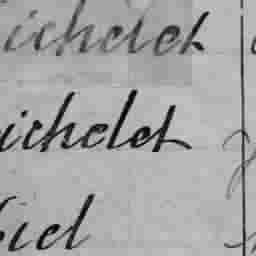 ichelet
ichelet
iel